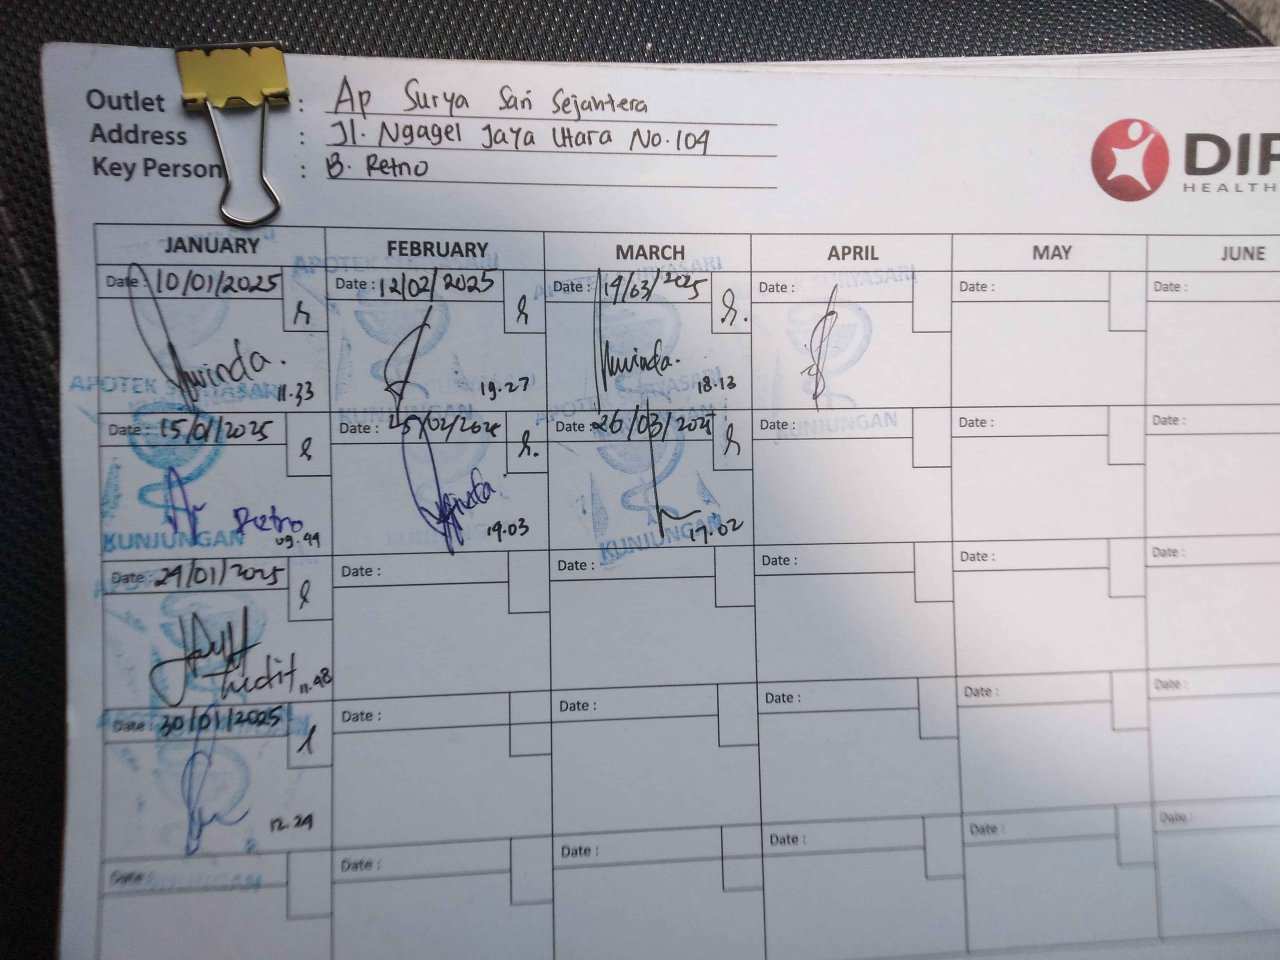 Outlet : Ap Surya Sari Sejahtera
Address : Jl. Ngagel Jaya Utara No.104
Key Person : B. Retno
DIP
HEALTH
JANUARY FEBRUARY MARCH APRIL MAY JUNE
Date : 10/01/2025 Date : 12/02/2025 Date : 19/03/2025 Date : Date : Date :
11.33 19.27 18.13
APOTEK SURYASARI
KUNJUNGAN
Date : 15/01/2025 Date : 25/02/2025 Date : 26/03/2025 Date : Date : Date :
Retno 09.44 19.03 17.02
KUNJUNGAN
Date : 24/01/2025 Date : Date : Date : Date : Date :
11.48
Date : 30/01/2025 Date : Date : Date : Date : Date :
12.24
Date : Date : Date : Date : Date : Date :
KUNJUNGAN